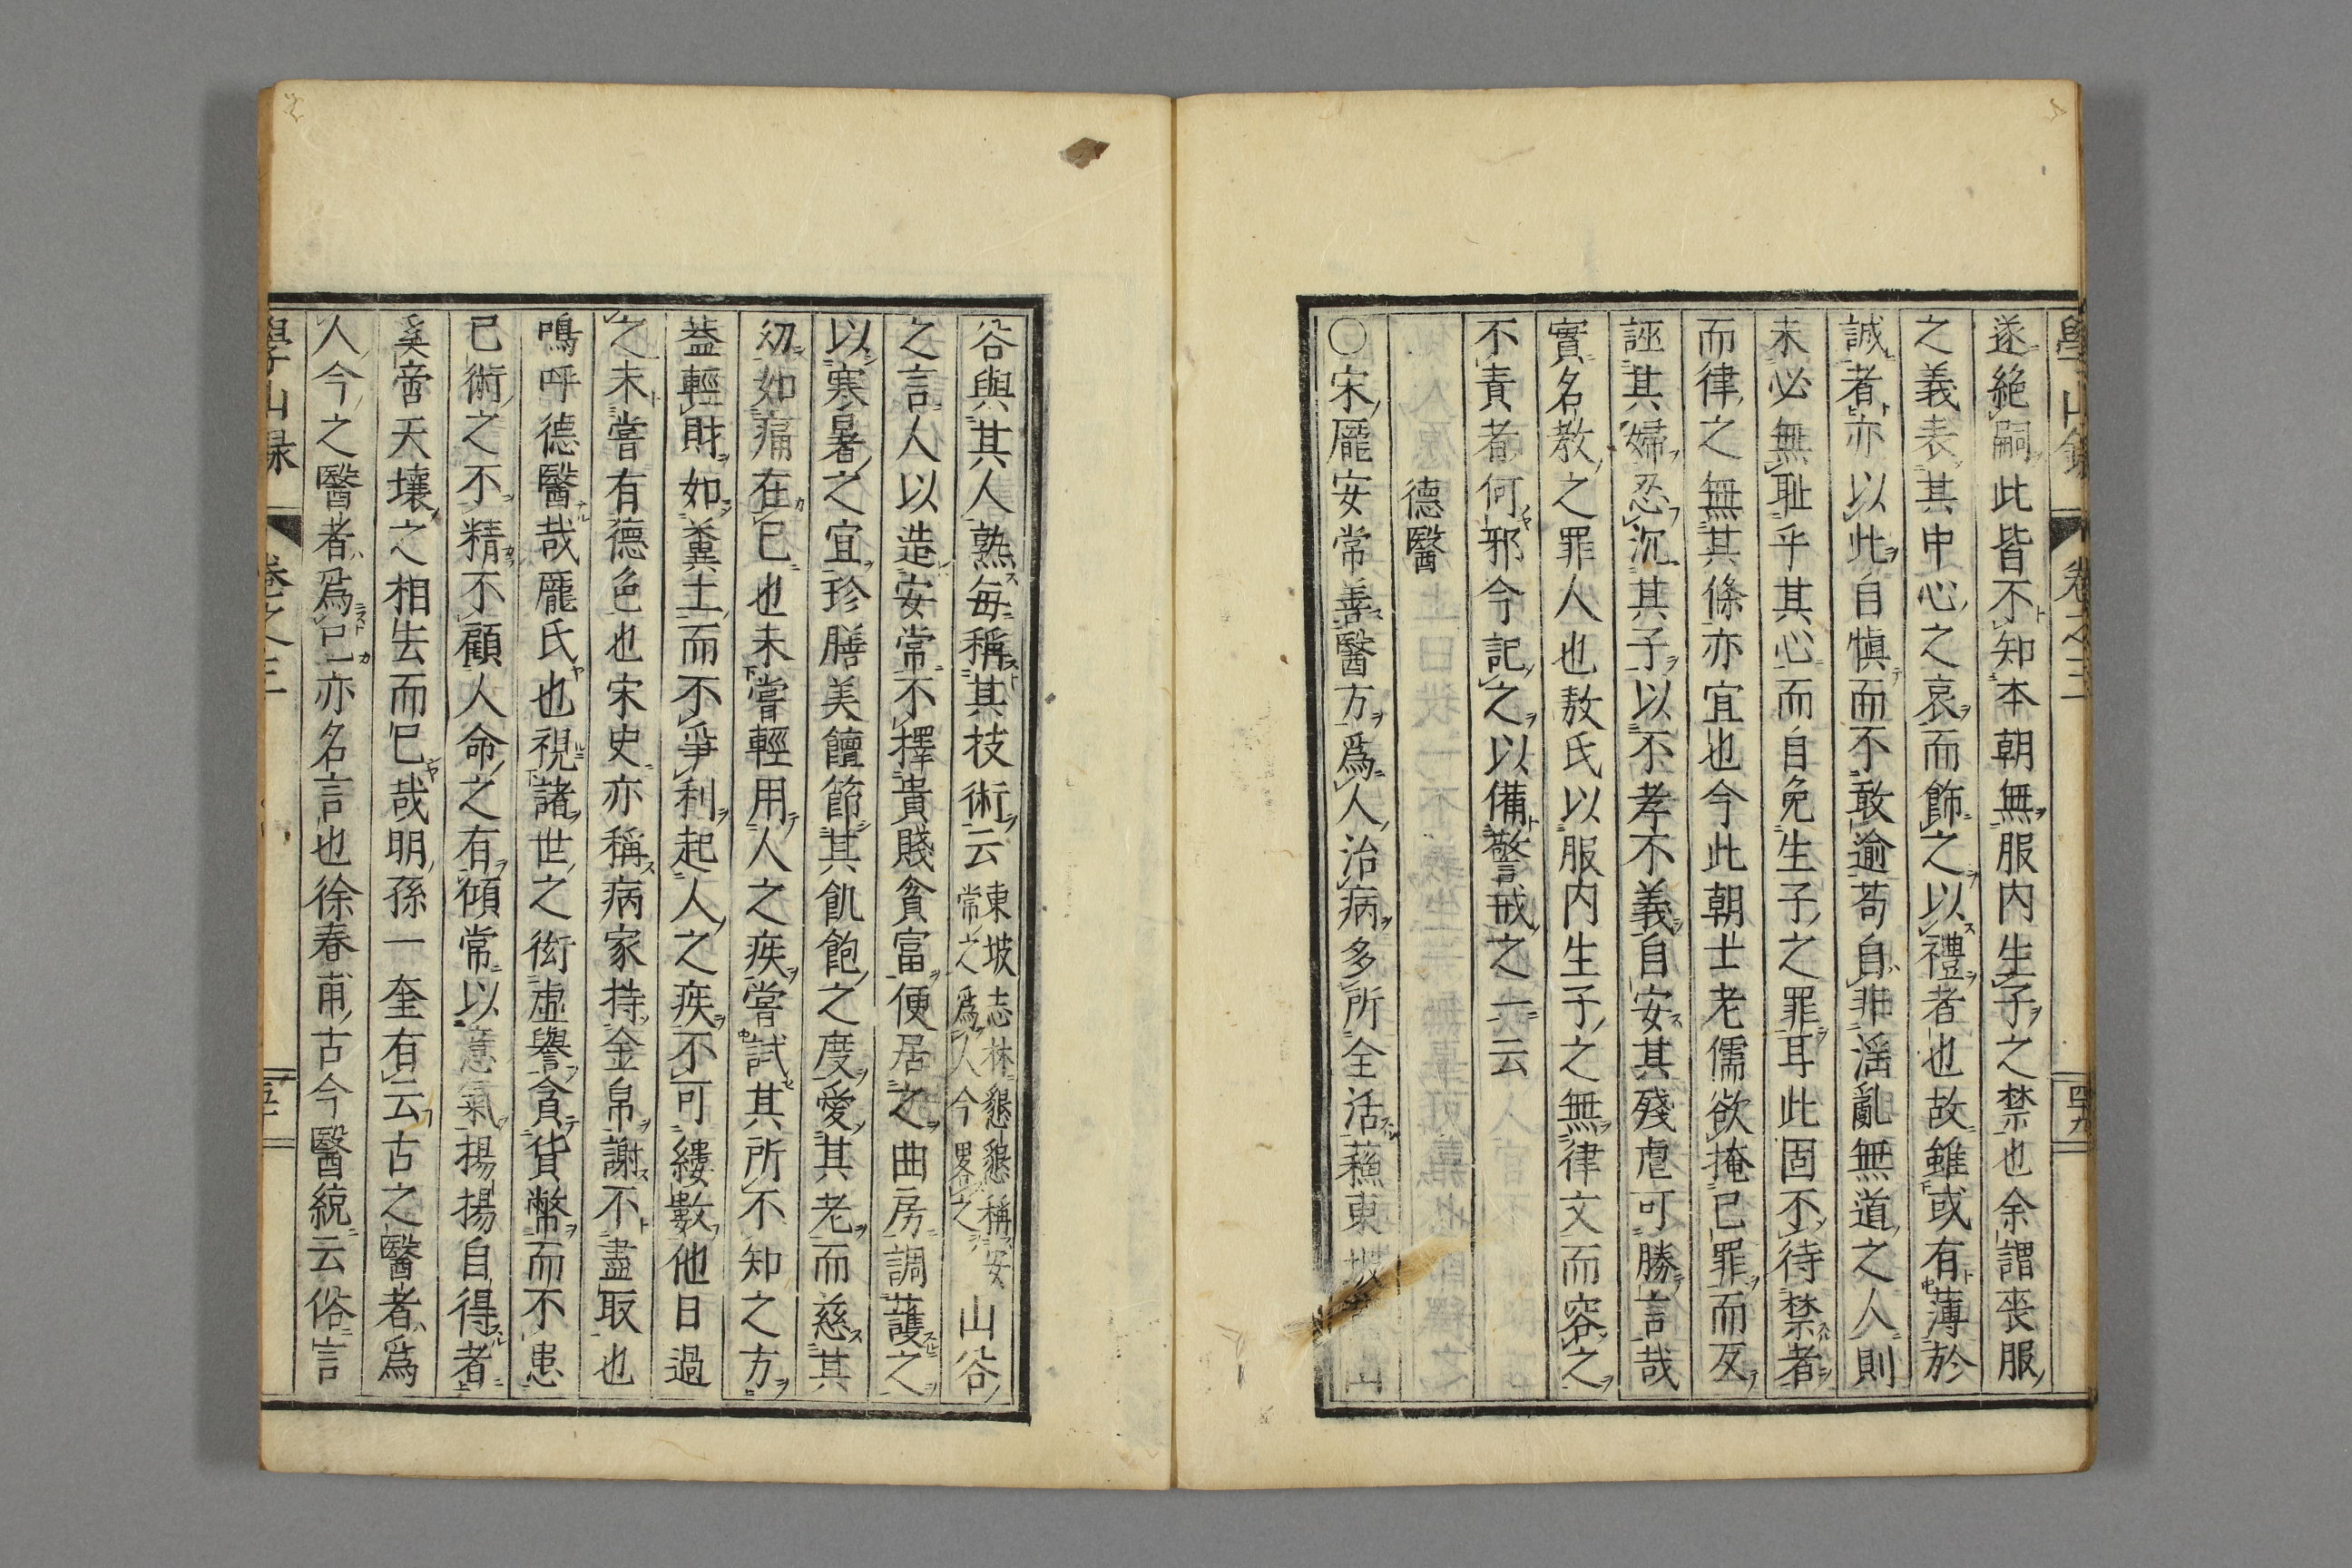 學山錄 卷之三 四十九
遂絶嗣此皆不知本朝無服内生子之禁也余謂喪服
之義表其中心之哀而飾之以禮者也故雖或有薄於
誠者亦以此自愼而不敢逾苟自非滛亂無道之人則
未必無耻乎其心而自免生子之罪耳此固不待禁者
而律之無其條亦宜也今此朝士老儒欲掩已罪而反
誣其婦忍沉其子以不孝不義自安其殘虐可勝言哉
實名教之罪人也敖氏以服内生子之無律文而容之
不責者何邪今記之以備警戒之一云
德醫
〇宋龐安常善醫方爲人治病多所全活蘓東坡 山
谷與其人熟每稱其技術云東坡志林懇懇稱安常之爲人今畧之山谷
之言人以造安常不擇貴賤貧富便居之曲房調護之
以寒暑之宜珍膳美饘節其飢飽之度愛其老而慈其
㓜如痛在已也未嘗輕用人之疾嘗試其所不知之方
葢輕財如糞土而不爭利起人之疾不可縷數他日過
之未嘗有德色也宋史亦稱病家持金帛謝不盡取也
鳴呼德醫哉龐氏也視諸世之衒虛譽貪貨幣而不患
已術之不精不顧人命之有傾常以意氣揚揚自得者
奚啻天壤之相去而已哉明孫一奎有云古之醫者爲
人今之醫者爲已亦名言也徐春甫古今醫統云俗言
學山錄 卷之三 五十